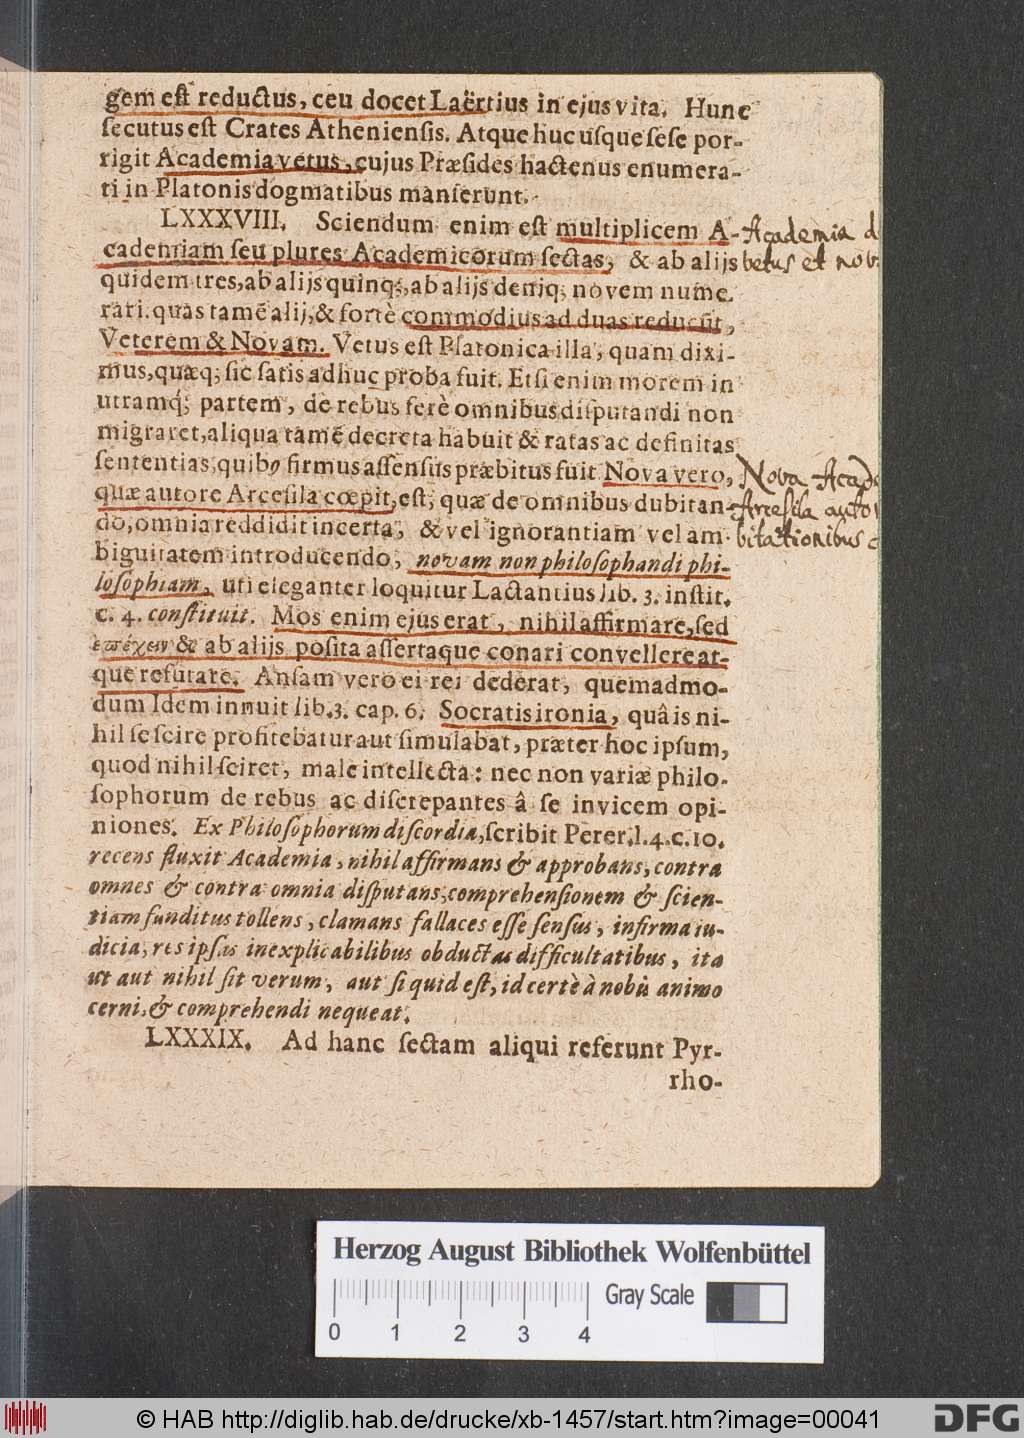 gem eſt reductus, ceu docet Laërtius in ejus vita. Hunc
ſecutus eſt Crates Athenienſis. Atque huc uſque ſeſe por-
rigit Academia vetus, cujus Præſides hactenus enumera-
ti in Platonis dogmatibus manſerunt.
LXXXVIII. Sciendum enim eſt multiplicem A-
cademiam ſeu plures Academicorum ſectas, & ab alijs
quidem tres, ab alijs quinq;, ab alijs deniq; novem nume.
rari. quas tamẽ alij, & fortè commodius ad duas reducũt,
Veterem & Novam. Vetus eſt Platonica illa, quam dixi-
mus, quæq; ſic ſatis adhuc proba fuit. Etſi enim morem in
utramq; partem, de rebus ferè omnibus diſputandi non
migraret, aliqua tamẽ decreta habuit & ratas ac definitas
ſententias, quibꝰ firmus aſſenſus præbitus fuit Nova vero,
quæ autore Arceſila cœpit, eſt, quæ de omnibus dubitan-
do, omnia reddidit incerta, & vel ignorantiam vel am-
biguitatem introducendo, novam non philoſophandi phi-
loſophiam, uti eleganter loquitur Lactantius lib. 3. inſtit.
c. 4. conſtituit. Mos enim ejus erat, nihil affirmare, ſed
ἐπέχειν & ab alijs poſita aſſertaque conari convellere at-
que refutare. Anſam vero ei rei dederat, quemadmo-
dum Idem innuit lib. 3. cap. 6. Socratis ironia, quâ is ni-
hil ſe ſcire profitebatur aut ſimulabat, præter hoc ipſum,
quod nihil ſciret, male intellecta: nec non variæ philo-
ſophorum de rebus ac diſcrepantes â ſe invicem opi-
niones. Ex Philoſophorum diſcordia, ſcribit Perer. l. 4. c. 10.
recens fluxit Academia, nihil affirmans & approbans, contra
omnes & contra omnia diſputans, comprehenſionem & ſcien-
tiam funditus tollens, clamans fallaces eſſe ſenſus, infirma iu-
dicia, res ipſas inexplicabilibus obductas difficultatibus, ita
ut aut nihil ſit verum, aut ſi quid eſt, id certè à nobis animo
cerni, & comprehendi nequeat.
LXXXIX. Ad hanc ſectam aliqui referunt Pyr-
rho-
Academia
vetus et nov
Nova Acad
Arcesila auto
bitationibus
Herzog August Bibliothek Wolfenbüttel
Gray Scale
0 1 2 3 4
© HAB http://diglib.hab.de/drucke/xb-1457/start.htm?image=00041
DFG